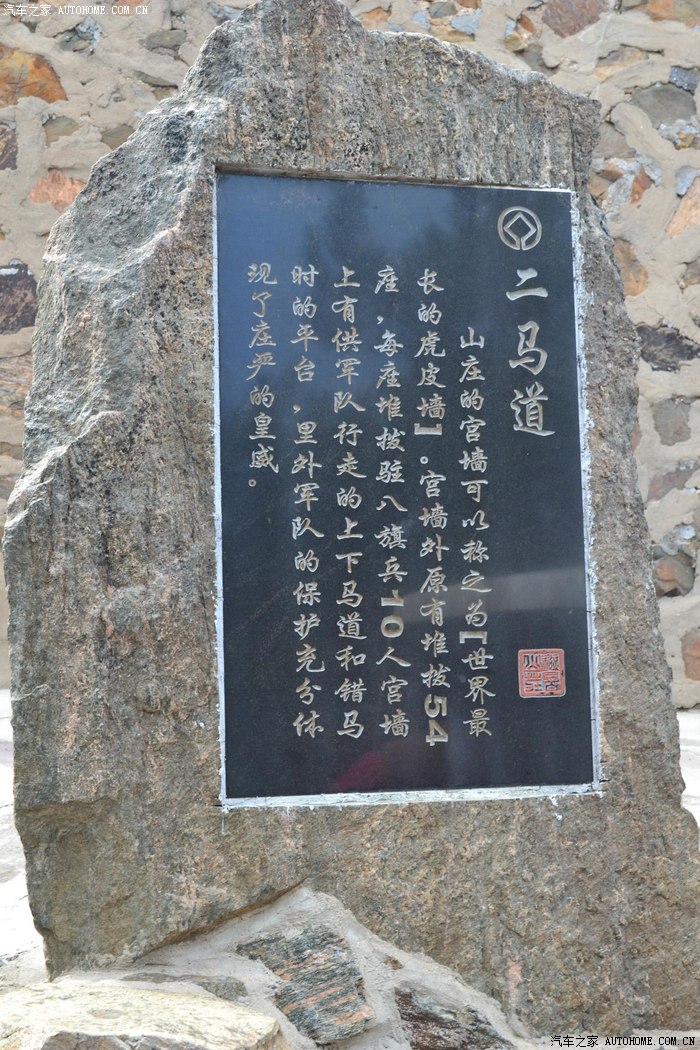 汽车之家 AUTOHOME.COM.CN
二马道
山庄的宫墙可以称之为【世界最
长的虎皮墙】。宫墙外原有堆拔54
座，每座堆拔驻八旗兵10人宫墙
上有供军队行走的上下马道和错马
时的平台，里外军队的保护充分体
现了庄严的皇威。
汽车之家 AUTOHOME.COM.CN